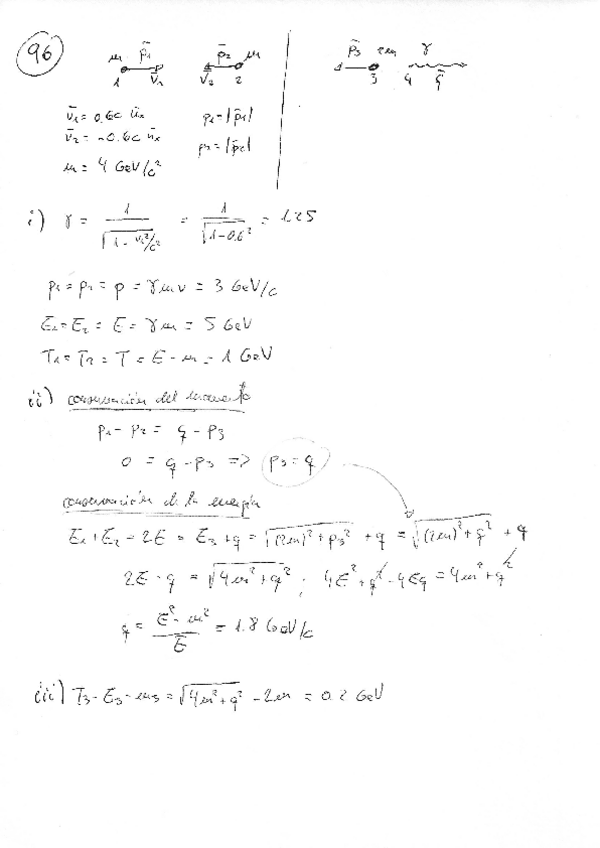 96
m p̄₁ p̄₂ m p̄₃ 2m γ
1 v̄₁ v̄₂ 2 3 4 q̄
v̄₁ = 0.6c ūₓ p₁ = |p̄₁|
v̄₂ = -0.6c ūₓ p₂ = |p̄₂|
m = 4 GeV/c²
i) γ = 1/√(1 - v₁²/c²) = 1/√(1 - 0.6²) = 1.25
p₁ = p₂ = p = γmv = 3 GeV/c
E₁ = E₂ = E = γm = 5 GeV
T₁ = T₂ = T = E - m = 1 GeV
ii) conservación del momento
p₁ - p₂ = q - p₃
0 = q - p₃ => p₃ = q
conservación de la energía
E₁ + E₂ = 2E = E₃ + q = √((2m)² + p₃²) + q = √((2m)² + q²) + q
2E - q = √(4m² + q²) ; 4E² + q² - 4Eq = 4m² + q²
q = (E² - m²)/E = 1.8 GeV/c
iii) T₃ = E₃ - m₃ = √(4m² + q²) - 2m = 0.2 GeV